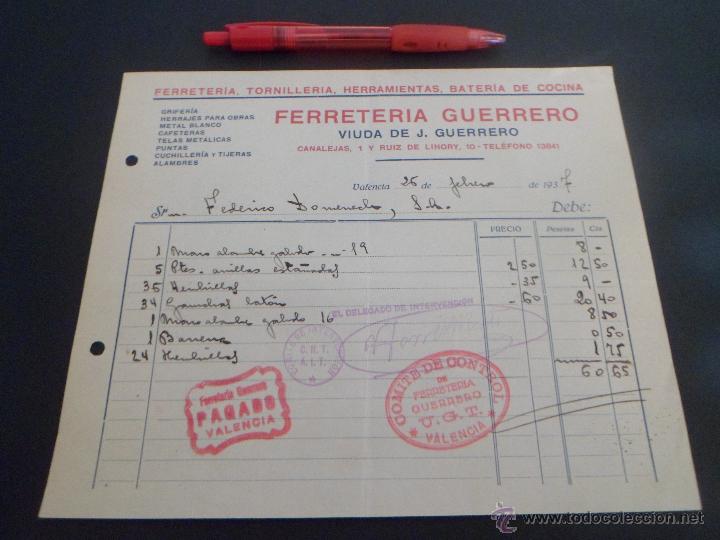 FERRETERÍA, TORNILLERIA, HERRAMIENTAS, BATERÍA DE COCINA
GRIFERÍA
HERRAJES PARA OBRAS
METAL BLANCO
CAFETERAS
TELAS METÁLICAS
PUNTAS
CUCHILLERÍA Y TIJERAS
ALAMBRES
FERRETERIA GUERRERO
VIUDA DE J. GUERRERO
CANALEJAS, 1 Y RUIZ DE LIHORY, 10 - TELÉFONO 13841
Valencia 25 de febrero de 1937
Sr Federico Domenech, S.A. Debe:
PRECIO Pesetas Cts.
1 Mazo alambre galvdo 19 8 -
5 Ptes. anillas estañadas 2 50 12 50
35 Hembrillas - 35 9 -
34 Ganchos latón - 60 20 40
1 Mazo alambre galvdo 16 8 50
1 Barrena 0 50
24 Hembrillas 1 75
60 65
EL DELEGADO DE INTERVENCIÓN
C.N.T.
A.I.T.
Ferretería Guerrero
PAGADO
VALENCIA
COMITE DE CONTROL
DE
FERRETERIA
GUERRERO
U.G.T.
VALENCIA
todocoleccion
www.todocoleccion.net